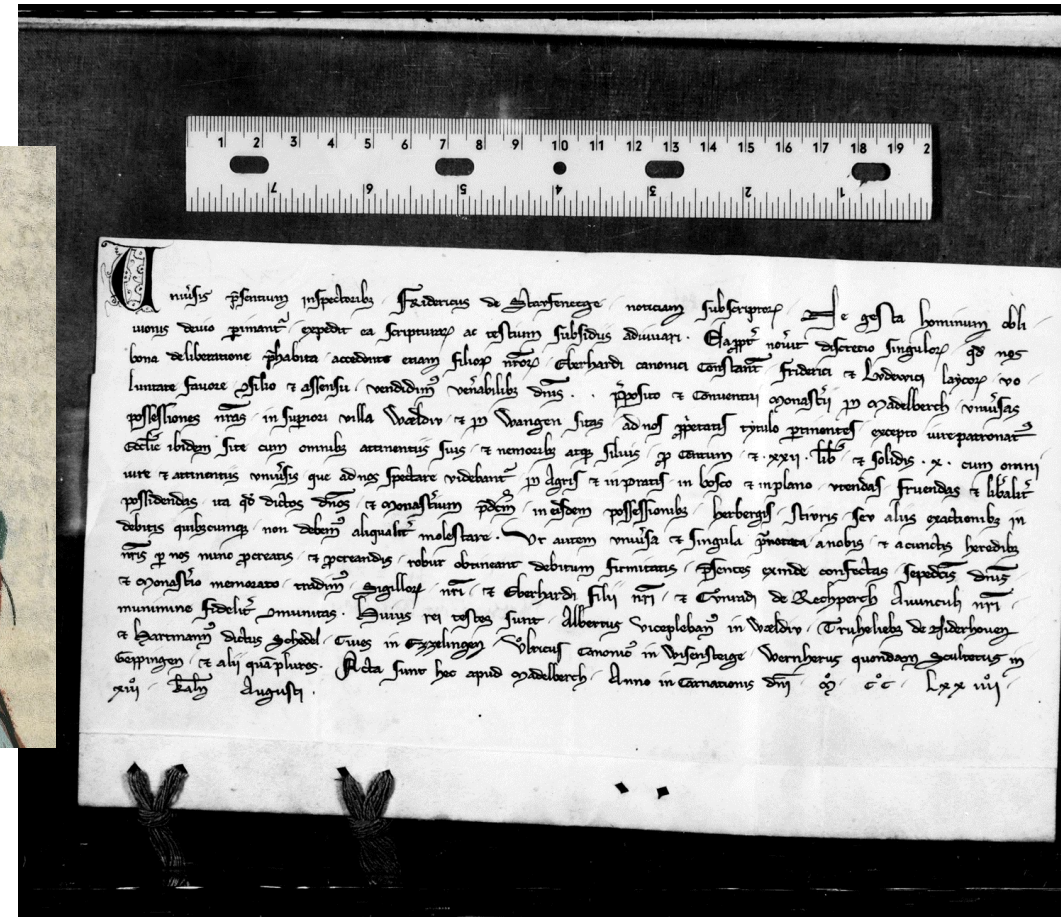 1 2 3 4 5 6 7 8 9 10 11 12 13 14 15 16 17 18 19 2
7 6 5 4 3 2 1
Uniu̾sis p̄sentium inspectoribꝫ Fridericus de Starfenegge noticiam subscriptoꝝ Ne gesta hominum obli
uionis deuio ꝑimant᷑ expedit ea scripturaꝝ ac testium subsidiis adiuuari . Eapropt̾ nou̾it discretio singuloꝝ qđ nos
bona deliberatione p̄habita accedente etiam filioꝝ nr̄oꝝ Eberhardi canonici Constant̄ Friderici et Lvdewici laycoꝝ vo
luntate fauore ꝯsilio et assensu vendidim᷒ ven̾abilibꝫ dn̄is . . p̄posito et Conuentui monast̾ii in Madelberch vniu̾sas
possessiones nr̄as in supiori villa Wældiv et in Wangen sitas ad nos ꝓpietatis tytulo ꝑtinentes excepto iure patronat᷒
Eccl̄ie ibidem site cum omnibꝫ attinentiis suis et nemoribꝫ atqꝫ siluis ꝓ Centum et . xxii . lib̾ et solidis . x . cum omni
iure et attinentiis vniu̾sis que ad nos spectare videbant᷑ in agris et in pratis in bosco et in plano vtendas fruendas et lib̾alit̾
possidendas ita qđ dictos dn̄os et monast̾ium p̄dc̄m in eisdem possessionibꝫ herbergis stivris sev aliis exactionibꝫ in
debitis quibꝫcumqꝫ non debem᷒ aliqualit̾ molestare . Vt autem vniu̾sa et singula p̄notata a nobis et a cunctis heredibꝫ
nr̄is ꝑ nos nunc ꝓcreatis et ꝓcreandis robur obtineant debitum firmitatis p̄sentes exinde confectas sepedc̄is dn̄is
et monast̾io memorato tradim᷒ sigilloꝝ nr̄i et Eberhardi filii nr̄i et Cvnradi de Rechperch auunculi nr̄i
munimine fidelit̾ ꝯmunitas . Huius rei testes sunt Albertus vicepleban᷒ in Wældiv Truhelieb de Niderhouen
et Hartmann᷒ dictus Schedel Ciues in Ezzelingen Vͦlricus Canonic᷒ in Wisensteige Wernherus quondam Scultetus in
Geppingen et alii quā plures . Acta sunt hec apud Madelberch Anno in Carnationis dn̄i . M̊ C̊C̊ Lxx iiii̊
xvi̊ kal̄n Augusti .